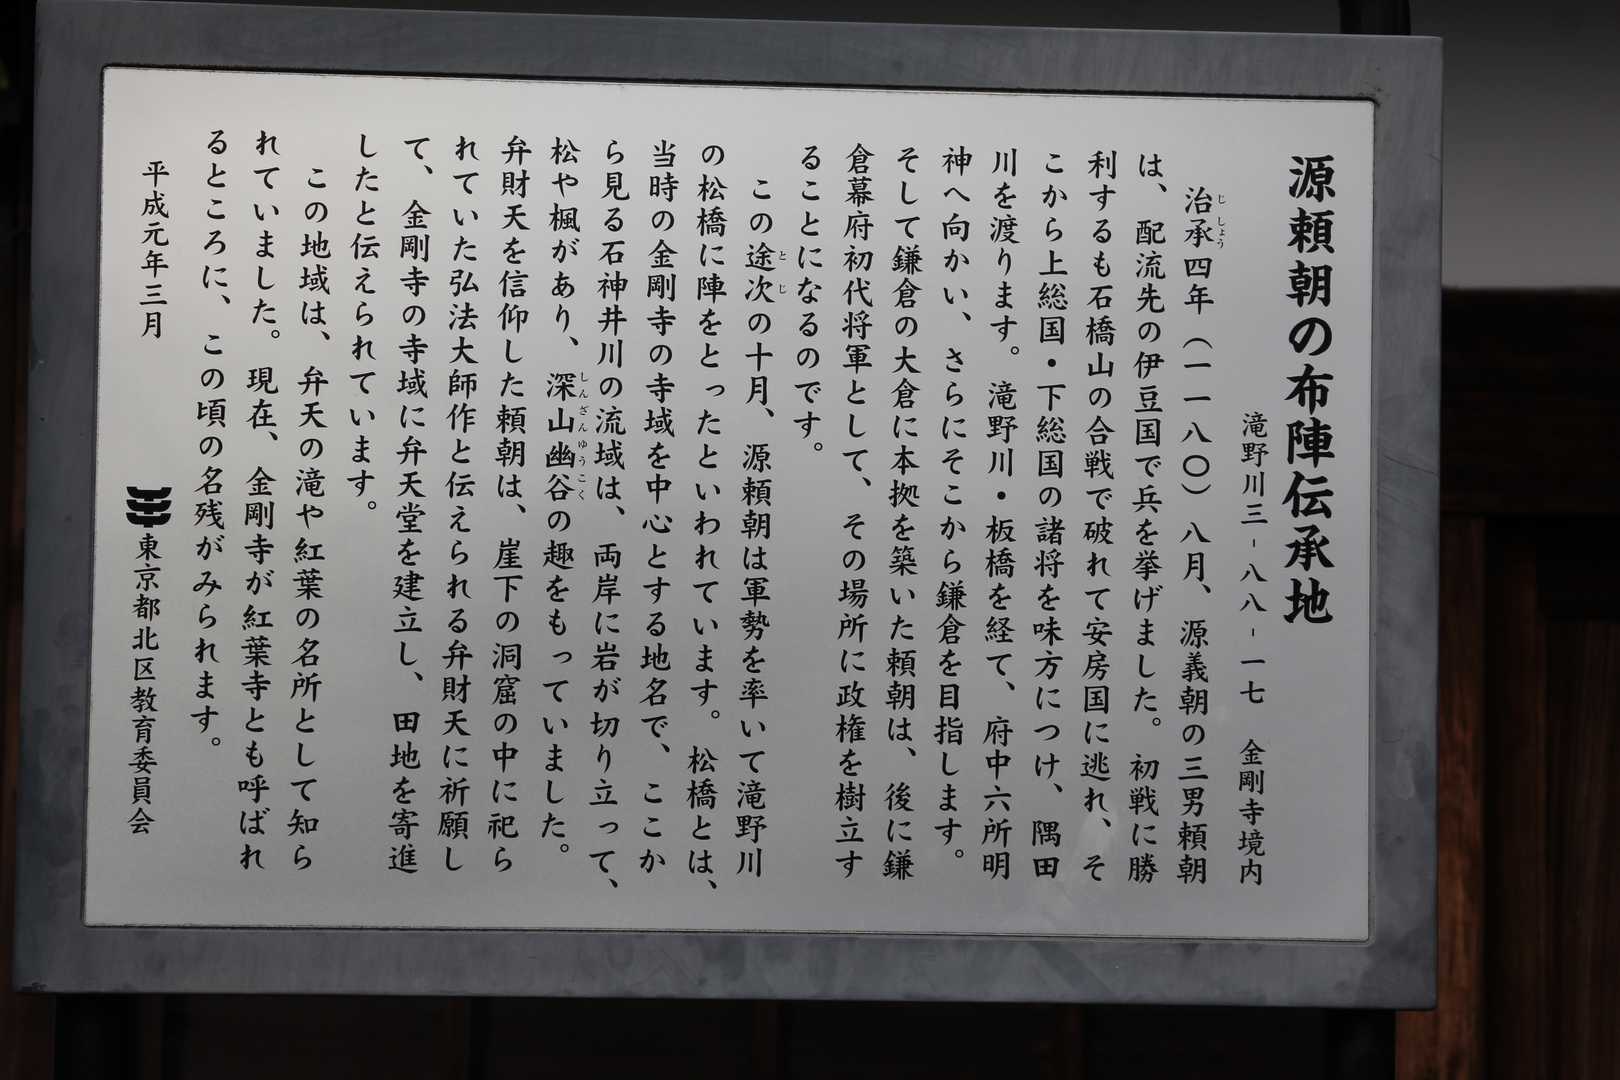 源頼朝の布陣伝承地
滝野川三-八八-一七　金剛寺境内
治承四年（一一八〇）八月、源義朝の三男頼朝
じしょう
は、配流先の伊豆国で兵を挙げました。初戦に勝
利するも石橋山の合戦で破れて安房国に逃れ、そ
こから上総国・下総国の諸将を味方につけ、隅田
川を渡ります。滝野川・板橋を経て、府中六所明
神へ向かい、さらにそこから鎌倉を目指します。
そして鎌倉の大倉に本拠を築いた頼朝は、後に鎌
倉幕府初代将軍として、その場所に政権を樹立す
ることになるのです。
この途次の十月、源頼朝は軍勢を率いて滝野川
とじ
の松橋に陣をとったといわれています。松橋とは、
当時の金剛寺の寺域を中心とする地名で、ここか
ら見る石神井川の流域は、両岸に岩が切り立って、
松や楓があり、深山幽谷の趣をもっていました。
しんざんゆうこく
弁財天を信仰した頼朝は、崖下の洞窟の中に祀ら
れていた弘法大師作と伝えられる弁財天に祈願し
て、金剛寺の寺域に弁天堂を建立し、田地を寄進
したと伝えられています。
この地域は、弁天の滝や紅葉の名所として知ら
れていました。現在、金剛寺が紅葉寺とも呼ばれ
るところに、この頃の名残がみられます。
平成元年三月
東京都北区教育委員会